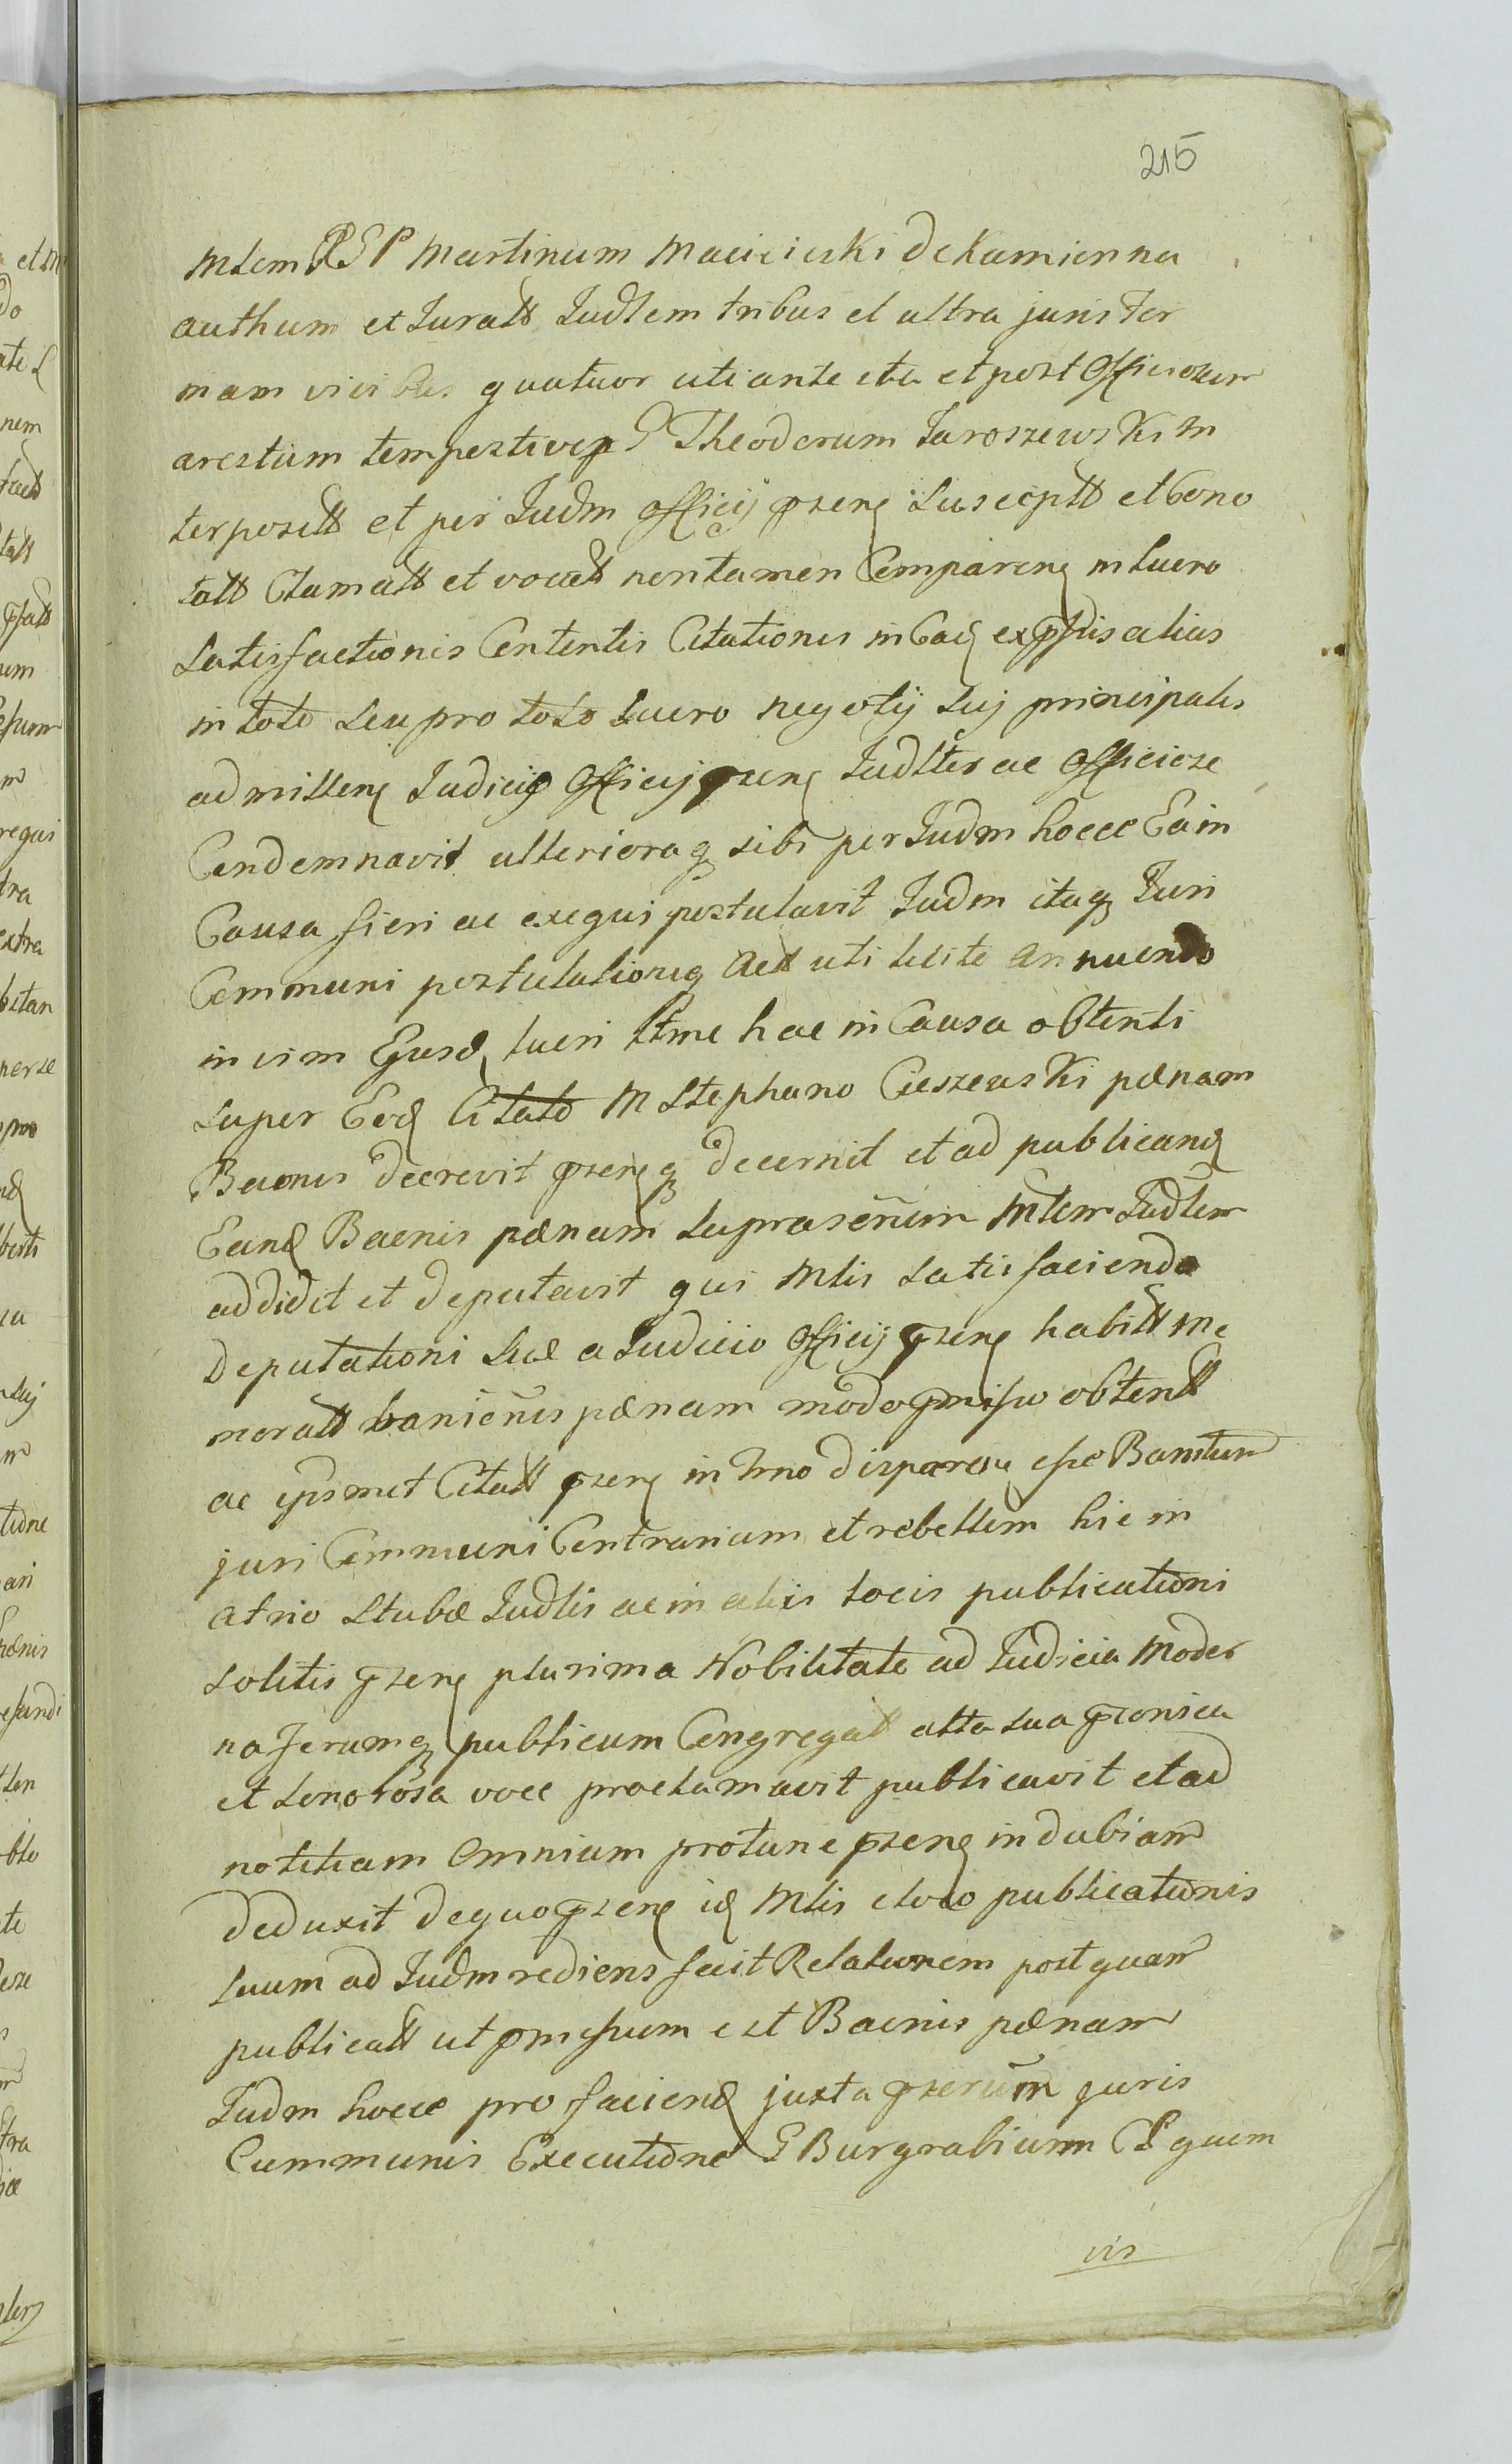 215
Mlem RGP Martinum Macieiuski de Kamienna
authum et Juratt Judlem tribus et ultra juris for
mam vicibus quatuor uti ante ita et post Officiosum
arestum tempestive p G Theodorum Jaroszewski in
terpositt et per Judm Officij pseng Susceptt et bono
tatt Clamatt et vocatt non tamen Comparens in lucro
Satisfactionis Contentis Citationis in ex alias
in toto seu pro toto lucro negotij sui principalis
admitteng Judicij Officij pseng Judltter ac Officiose
Condemnavit ulterioraq sibi per Judm hocce Ea in
Causa fieri ac exequi postulavit Judm itaq Juri
Communi postulationiq Actt uti licite annuendo
in vim Eiusd lucri ttme hac in Causa obtenti
super Eod Citato M Stephano Cieszewski pænam
Baonis decrevit psenq decernit et ad publicand
Eand Baonis pænam suprasc̃num Mlem Judlem
addidit et deputavit qui Mlis satisfaciendo
Deputationi suæ a Judicio Officij pseng habitt me
moratt banie͠nis pænam modo pmisso obtentt
ac ipsmet Citatt pseng in tmo disparen esse Banitum
juri Communi Contrarium et rebellem hic in
atrio Stubæ Judlis ac in aliis locis publicationi
solitis pseng plurima Nobilitate ad Judicia Moder
na ferumq publicum Congregat alta sua psonica
et sonorosa voce proclamavit publicavit et ad
notitiam Omnium protunc pseng indubiam
deduxit de quo pseng id Mlis e loco publicationis
suum ad Judm rediens fecit Relationem post quam
publicatt ut pmissum est Baonis pænam
Judm hocce pro faciend juxta pserum juris
Communis Executione G Burgrabium CS quem
vis